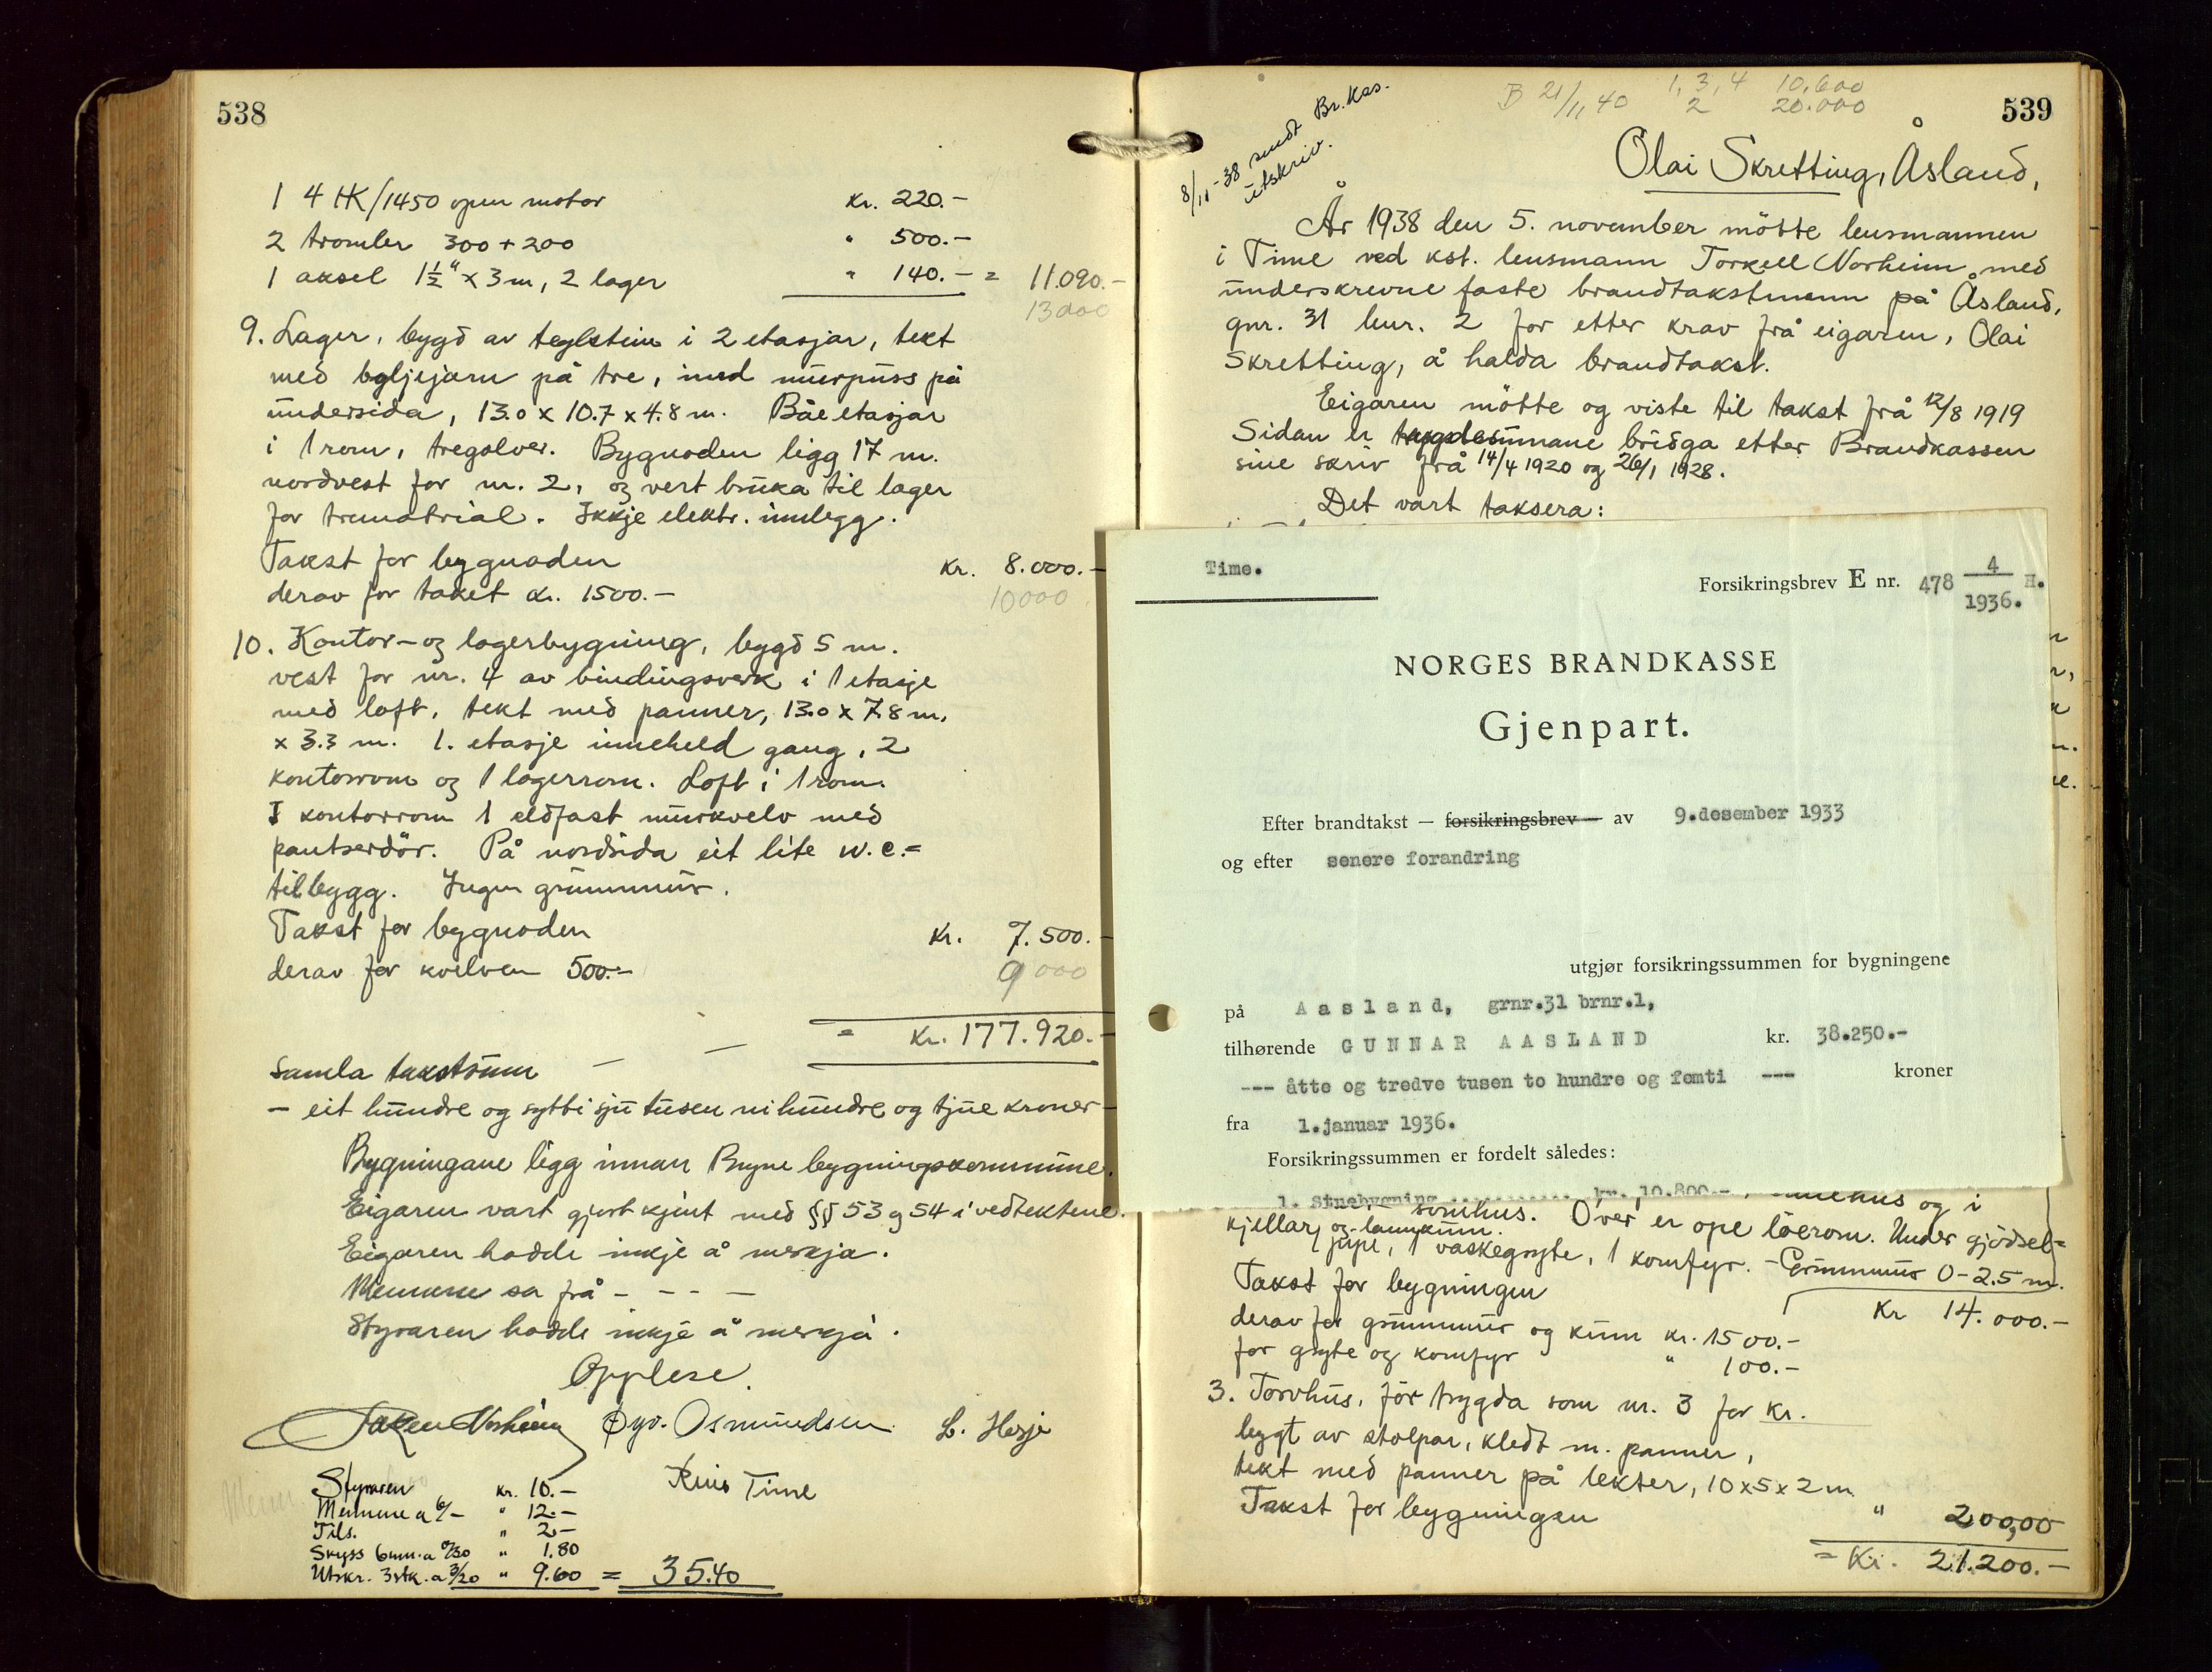 538
1 4 HK/1450 open motor kr. 220.-
2 tromler 300 + 200 " 500.-
1 aksel 1½" x 3 m, 2 lager " 140.- = 11.090.-
13000
9. Lager, bygd av teglstein i 2 etasjar, tekt
med bylgjejarn på tre, med murpuss på
undersida, 13.0 x 10.7 x 4.8 m. Båe etasjar
i 1 rom, tregolver. Bygnaden ligg 17 m.
nordvest for nr. 2, og vert bruka til lager
for trematrial. Ikkje elektr. innlegg.
Takst for bygnaden kr. 8.000.-
derav for taket kr. 1500.- 10000
10. Kontor- og lagerbygning, bygd 5 m.
vest for nr. 4 av bindingsverk i 1 etasje
med loft, tekt med panner, 13.0 x 7.8 m.
x 3.3 m. 1. etasje inneheld gang, 2
kontorrom og 1 lagerrom. Loft i 1 rom.
I kontorrom 1 eldfast murkvelv med
pantserdör. På nordsida eit lite w.c.=
tilbygg. Ingen grunnmur.
Takst for bygnaden kr. 7.500.-
derav for kvelven 500.- 9000
= Kr. 177.920.-
Samla takstsum — —
- eit hundre og sytti sju tusen ni hundre og tjue kroner -
Bygningane ligg innan Bryne bygningskommune.
Eigaren vart gjort kjent med §§ 53 og 54 i vedtektene.
Eigaren hadde inkje å merkja.
Mennene sa frå - - - -
Styraren hadde inkje å merkja.
Opplese.
Torkell Norheim Øyv. Osmundsen L. Hesje
Styraren kr. 10.-
Kris Time
Mennene a 6/- " 12.-
Tils. " 2.-
Skyss 6 mm. a 0/30 " 1.80
Utskr. 3 stk. a 3/20 " 9.60 = 35.40
539
B 21/11 40 1, 3, 4 10.600
2 20.000
8/11-38 sendt Br.kas.
utskriv.
Olai Skretting, Åsland,
År 1938 den 5. november mötte lensmannen
i Time ved kst. lensmann Torkell Norheim med
underskrevne faste brandtakstmenn på Åsland,
gnr. 31 bnr. 2 for etter krav frå eigaren, Olai
Skretting, å halda brandtakst.
Eigaren mötte og viste til takst frå 12/8 1919
Sidan er trygdesumane brigda etter Brandkassen
sine skriv frå 14/4 1920 og 26/1 1928.
Det vart taksera:
Time.
Forsikringsbrev E nr. 478 4/1936. H.
NORGES BRANDKASSE
Gjenpart.
Efter brandtakst — forsikringsbrev — av 9.desember 1933
og efter senere forandring
utgjør forsikringssummen for bygningene
på Aasland, grnr.31 brnr.1,
tilhørende GUNNAR AASLAND kr. 38.250.-
--- åtte og tredve tusen to hundre og femti --- kroner
fra 1.januar 1936.
Forsikringssummen er fordelt således:
1. Stuebygning .......... kr. 10.800.-
og i
kjellar og lannkum. Over er ope löerom. Under gjödsel=
1 vaskegryte, 1 komfyr. - Grunnmur 0-2.5 m.
Takst for bygningen Kr 14.000.-
derav for grunnmur og kum kr. 1500.-
for gryte og komfyr " 100.-
3. Torvhus, för trygda som nr. 3 for kr.
bygt av stolpar, kledt m. panner,
tekt med panner på lekter, 10 x 5 x 2 m
Takst for bygningen " 200,00
= Kr. 21.200.-